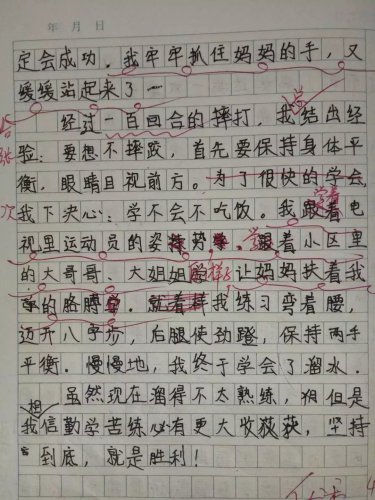 年 月 日
定会成功。我牢牢抓住妈妈的手，又
缓缓站起来了
经过一百回合的摔打，我结出经
验：要想不摔跤，首先要保持身体平
衡，眼睛目视前方。为了很快的学会，
我下决心：学不会不吃饭。我跟着电
视里运动员的姿势学。跟着小区里
的大哥哥、大姐姐学样子让妈妈扶着我
的胳膊 我练习弯着腰，
迈开八字步，后腿使劲蹬，保持两手
平衡。慢慢地，我终于学会了溜冰。
虽然现在溜得不太熟练，但是
我相信勤学苦练必有更大收获，坚持
到底，就是胜利！